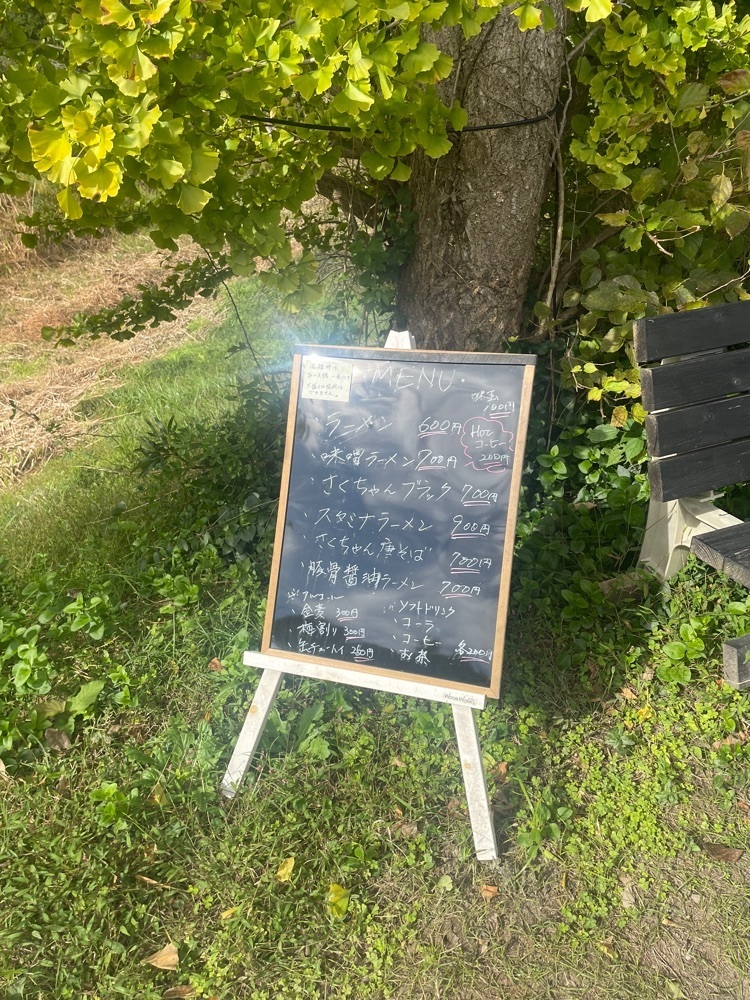 MENU
・ラーメン 600円
味噌ラーメン 700円
Hot
コーヒー
200円
・さくちゃんブラック 700円
・スタミナラーメン 900円
・さくちゃん唐そば 700円
・豚骨醤油ラーメン 700円
※アルコール
・金麦 300円
・梅割り 300円
・缶チューハイ 250円
・ソフトドリンク
・コーラ
・コーヒー
・お茶 各200円